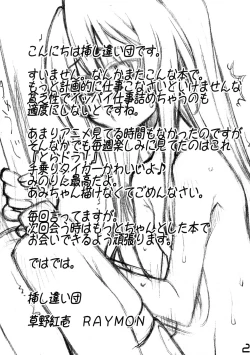 こんにちは挿し違い団です。
すいません。なんかまたこんな本で。
もっと計画的に仕事こなさないといけませんな
貧乏性でイッパイ仕事詰めちゃうのも
適度にしないとですね。
あまりアニメ見てる時間もなかったのですが
そんななかでも毎週楽しみに見てたのはこれ
『とらドラ!』
手乗りタイガーかわいいよ♪
みのりん最高だよ。
あみちゃん描けなくてごめんなさい。
毎回言ってますが。
次回会う時はもっとちゃんとした本で
お会いできるよう頑張ります。
ではでは。
挿し違い団
草野紅壱 RAYMON
2